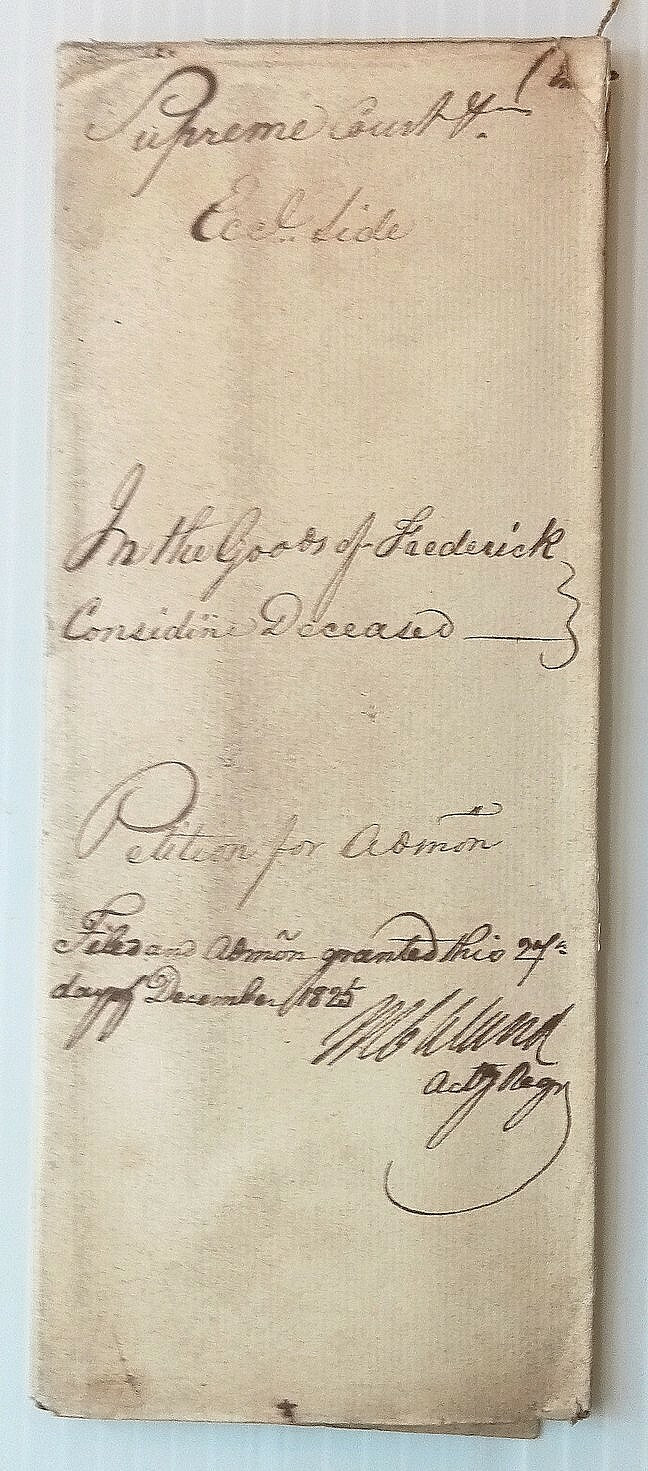 Supreme Court &
Eccl. Side
In the Goods of Frederick
Considine Deceased
Petition for Admõn
Filed and Admõn granted this 27th
day of December 1825
Actg Regr